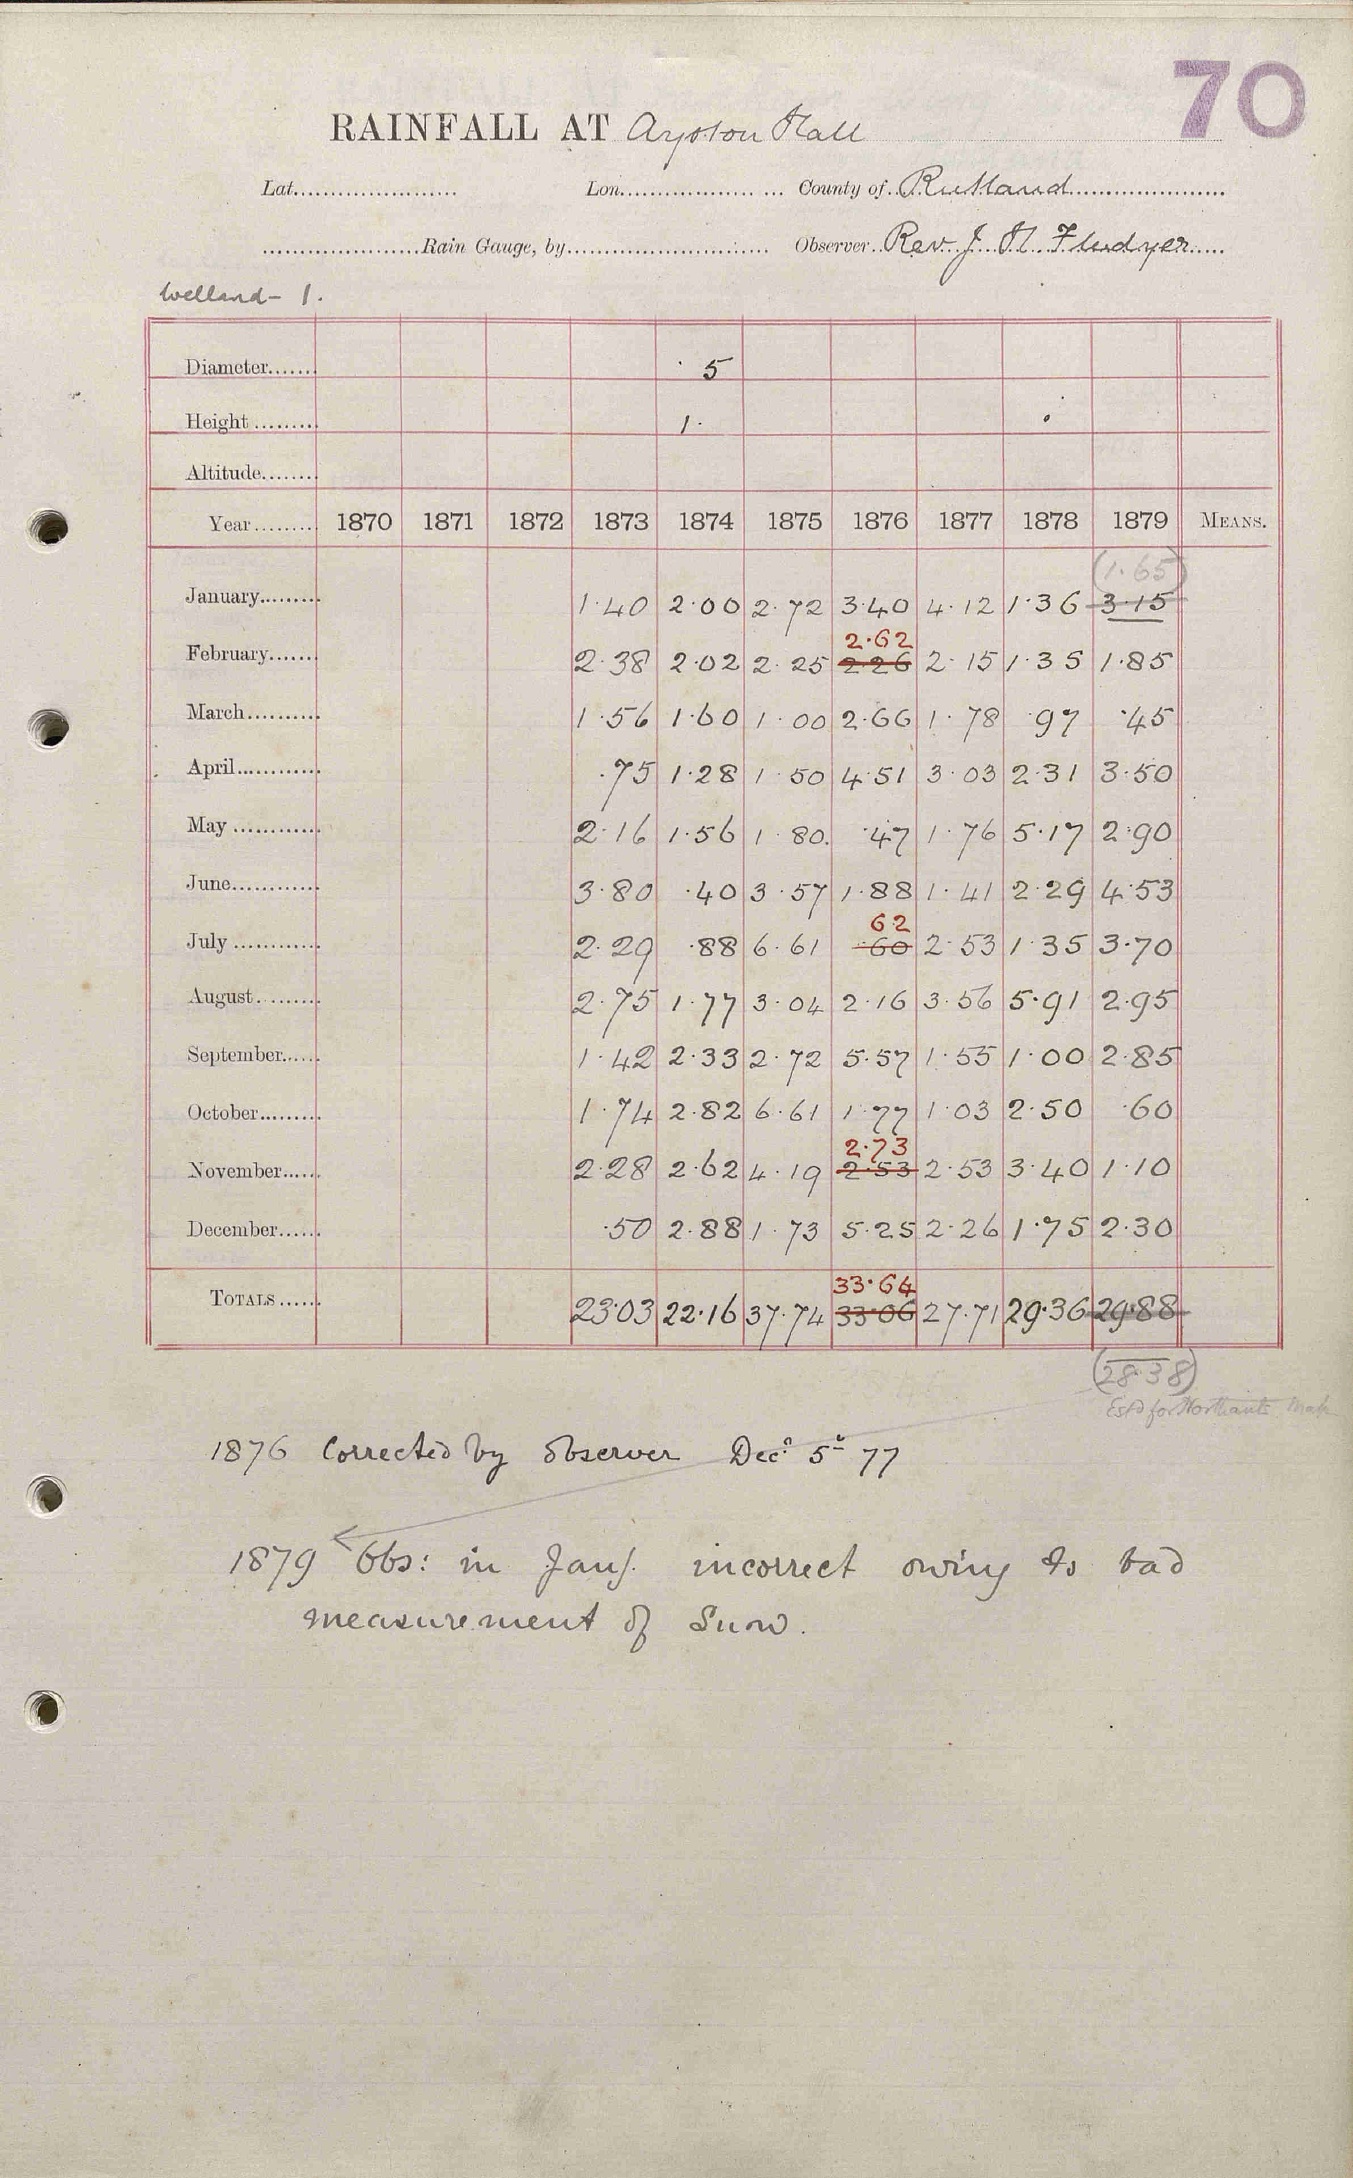 70
RAINFALL AT Ayston Hall
Lat...................... Lon.................. ... County of..Rutland.....................
.....................Rain Gauge, by........................... Observer..Rev. J. H. Fludyer.....
Welland - 1.
Diameter....... 5
Height ......... 1.
Altitude........
Year......... 1870 1871 1872 1873 1874 1875 1876 1877 1878 1879 MEANS.
(1.65)
January......... 1.40 2.00 2.72 3.40 4.12 1.36 3.15
2.62
February....... 2.38 2.02 2.25 2.26 2.15 1.35 1.85
March.......... 1.56 1.60 1.00 2.66 1.78 .97 .45
April............ .75 1.28 1.50 4.51 3.03 2.31 3.50
May ............ 2.16 1.56 1.80. .47 1.76 5.17 2.90
June............ 3.80 .40 3.57 1.88 1.41 2.29 4.53
62
July ............ 2.29 .88 6.61 .60 2.53 1.35 3.70
August......... 2.75 1.77 3.04 2.16 3.56 5.91 2.95
September...... 1.42 2.33 2.72 5.57 1.55 1.00 2.85
October......... 1.74 2.82 6.61 1.77 1.03 2.50 .60
2.73
November...... 2.28 2.62 4.19 2.53 2.53 3.40 1.10
December...... .50 2.88 1.73 5.25 2.26 1.75 2.30
33.64
TOTALS...... 23.03 22.16 37.74 33.06 27.71 29.36 29.88
(28.38)
Estd for Northants Mem
1876 Corrected by observer Decr. 5th 77
1879 Obs: in Jany. incorrect owing to bad
measurement of Snow.